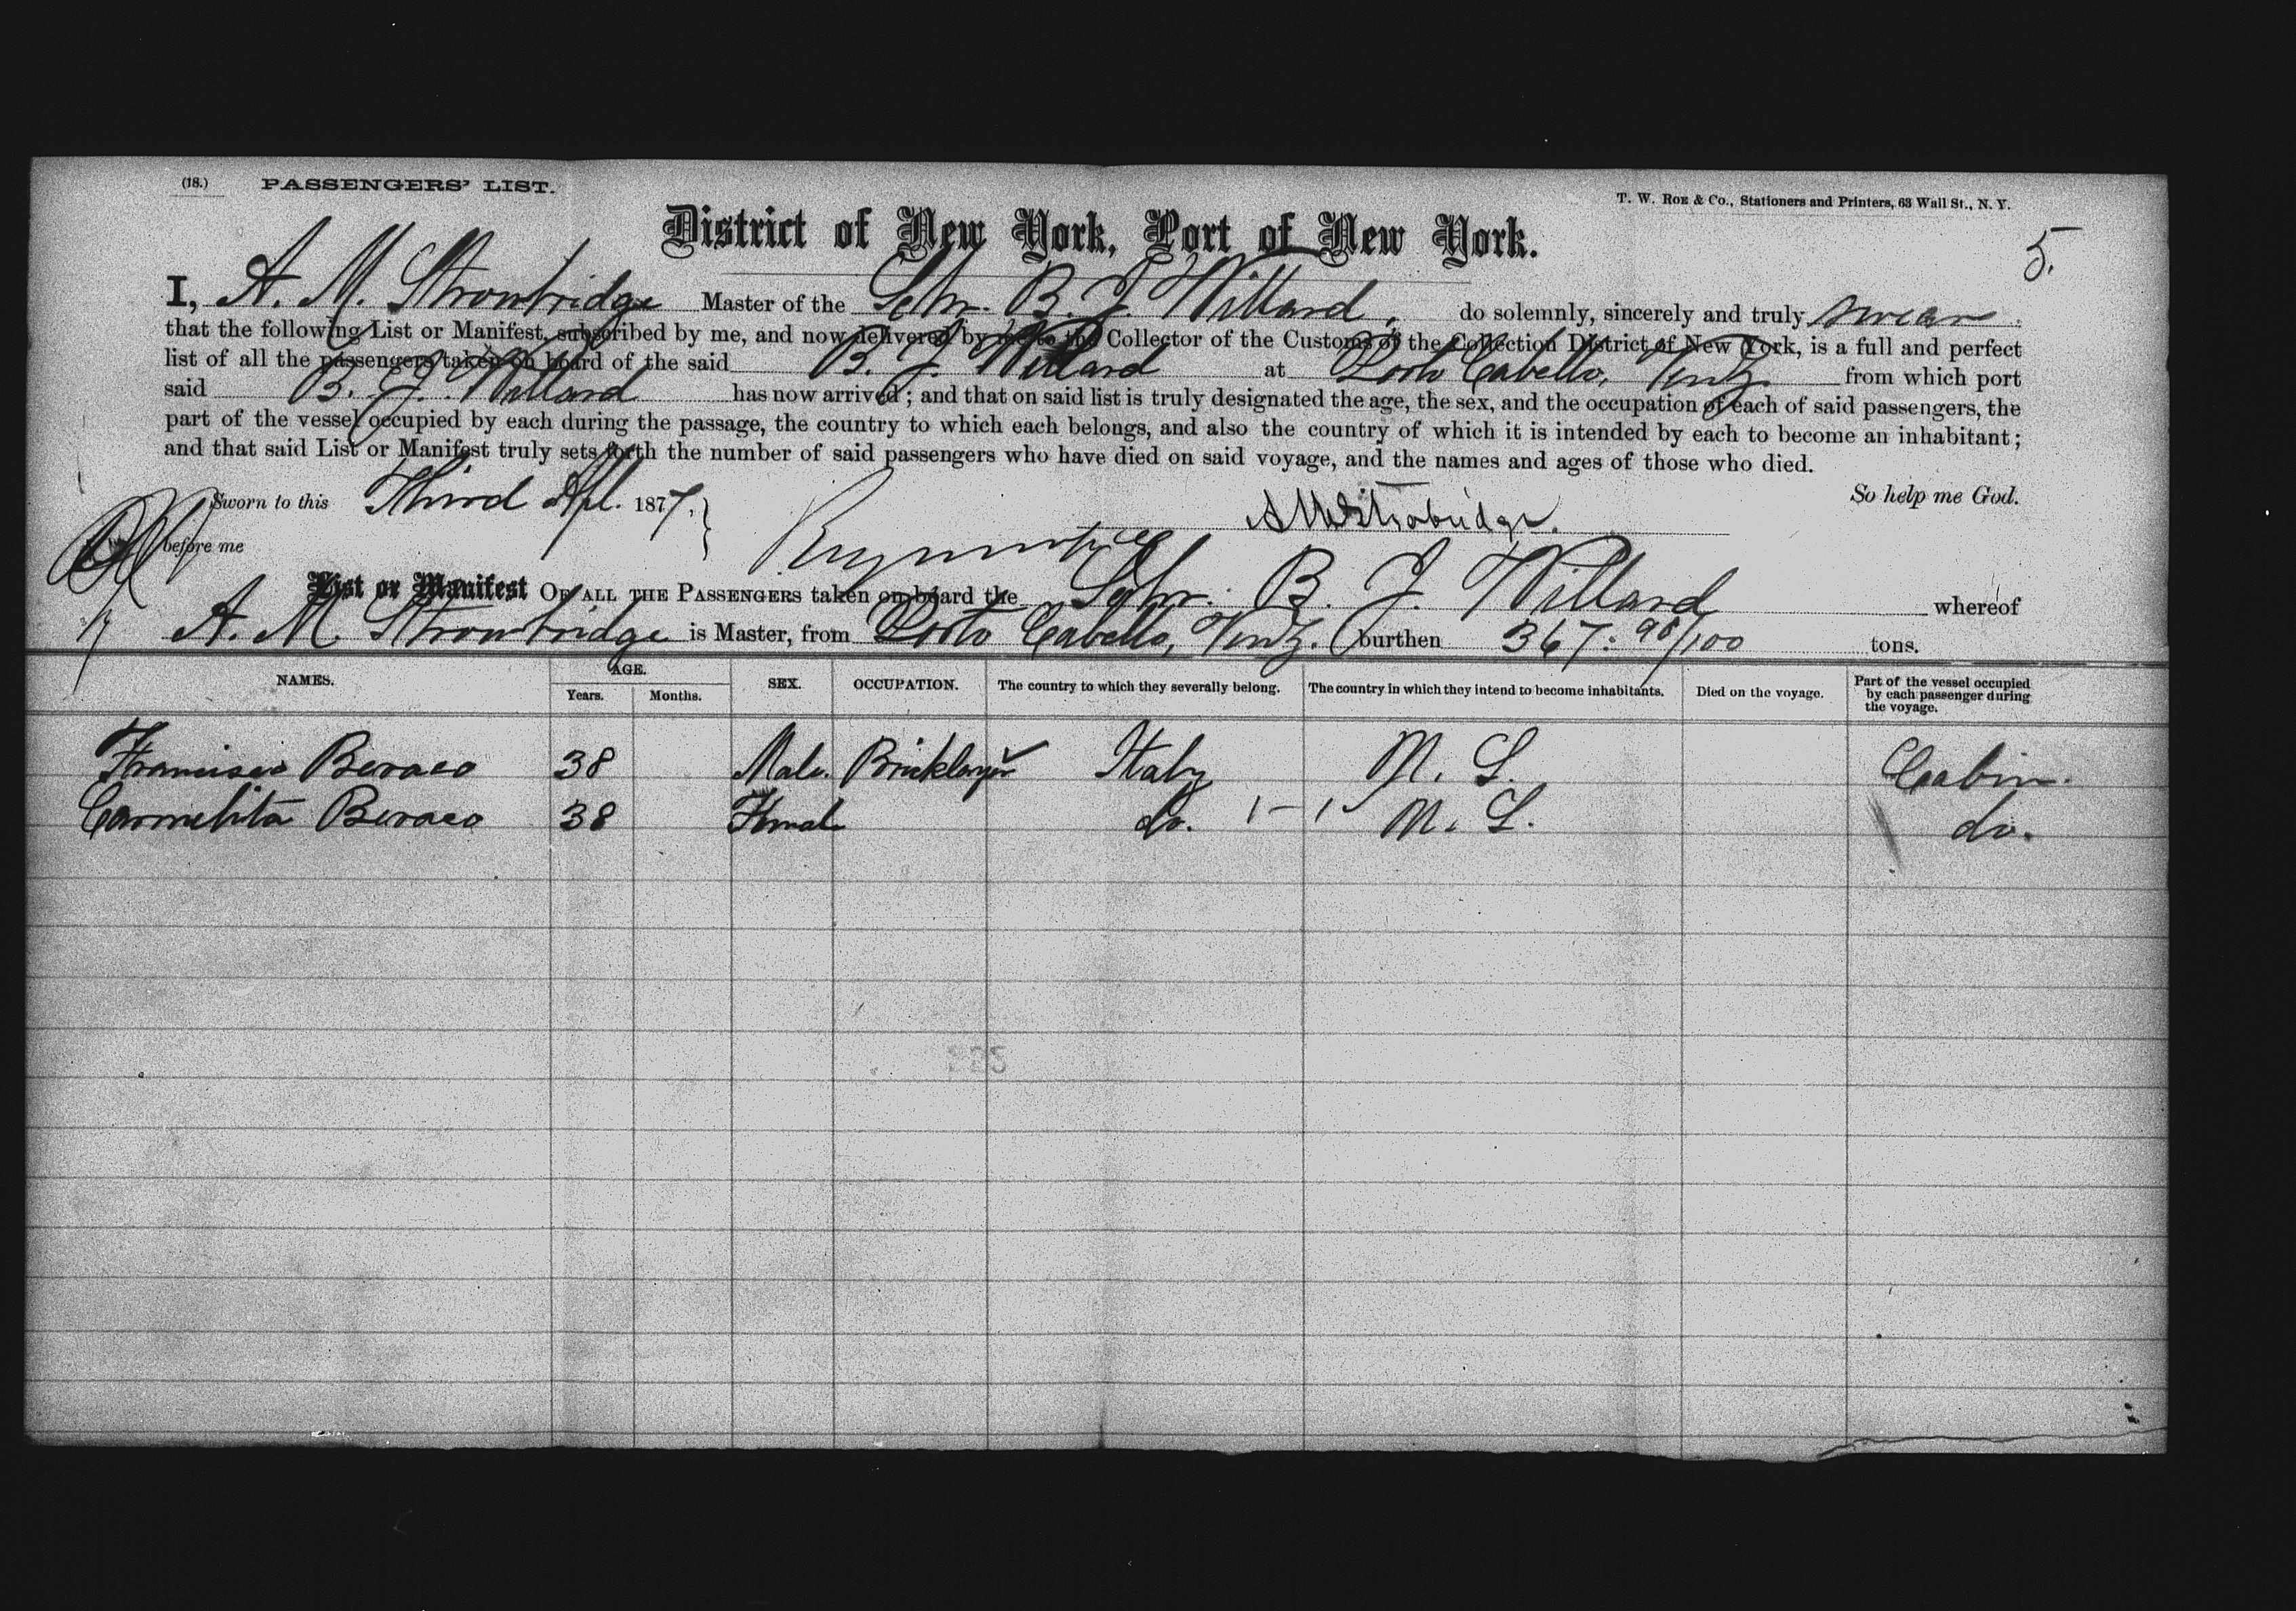 (18.) PASSENGERS' LIST.
T. W. ROE & CO., Stationers and Printers, 63 Wall St., N. Y.
District of New York, Port of New York.
5.
I, A. M. Strowbridge Master of the Schr. B. J. Willard, do solemnly, sincerely and truly swear
that the following List or Manifest, subscribed by me, and now delivered by me to the Collector of the Customs of the Collection District of New York, is a full and perfect
list of all the passengers taken on board of the said B. J. Willard at Porto Cabello, Venz. from which port
said B. J. Willard has now arrived; and that on said list is truly designated the age, the sex, and the occupation of each of said passengers, the
part of the vessel occupied by each during the passage, the country to which each belongs, and also the country of which it is intended by each to become an inhabitant;
and that said List or Manifest truly sets forth the number of said passengers who have died on said voyage, and the names and ages of those who died.
So help me God.
Sworn to this Third Apl. 1877.
before me
List or Manifest OF ALL THE PASSENGERS taken on board the Schr. B. J. Willard whereof
A. M. Strowbridge is Master, from Porto Cabello, Venz. burthen 367. 98/100 tons.
NAMES. AGE. SEX. OCCUPATION. The country to which they severally belong. The country in which they intend to become inhabitants. Died on the voyage. Part of the vessel occupied by each passenger during the voyage.
Years. Months.
Francisco Beraco 38 Male. Bricklayer Italy M. S. Cabin.
Carmelita Beraco 38 Female do. 1 - 1 M. S. do.
225